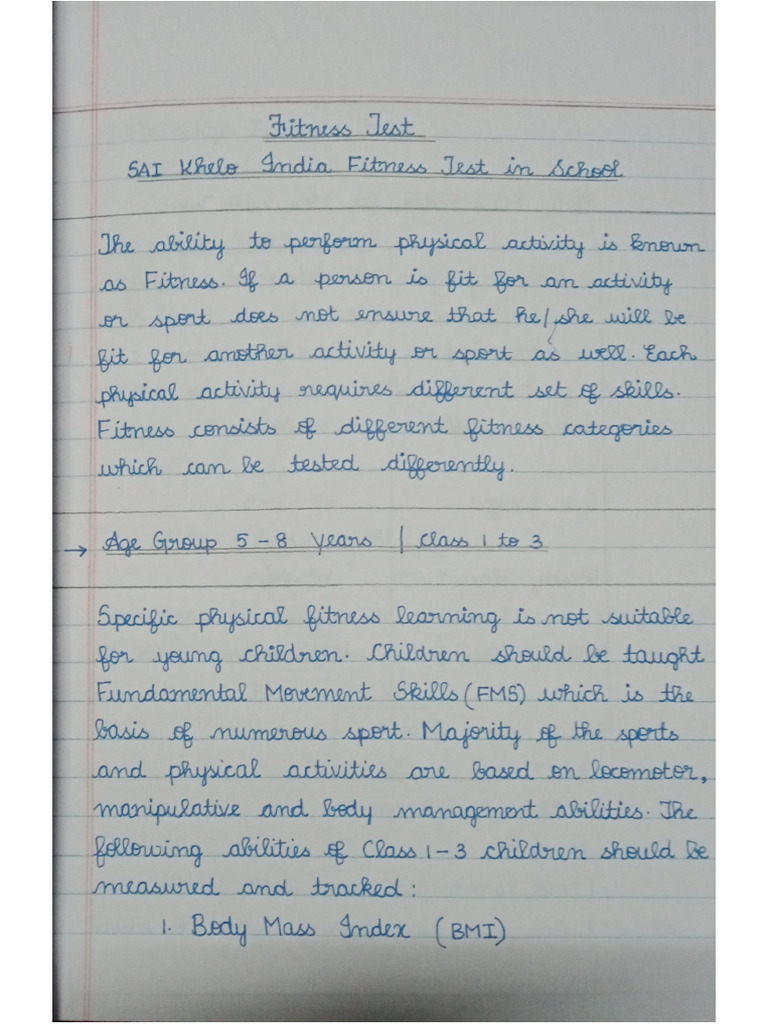 Fitness Test
SAI Khelo India Fitness Test in School
The ability to perform physical activity is known
as Fitness. If a person is fit for an activity
or sport does not ensure that he/she will be
fit for another activity or sport as well. Each
physical activity requires different set of skills.
Fitness consists of different fitness categories
which can be tested differently.
→ Age Group 5-8 Years | Class 1 to 3
Specific physical fitness learning is not suitable
for young children. Children should be taught
Fundamental Movement Skills (FMS) which is the
basis of numerous sport. Majority of the sports
and physical activities are based on locomotor,
manipulative and body management abilities. The
following abilities of Class 1-3 children should be
measured and tracked:
1. Body Mass Index (BMI)